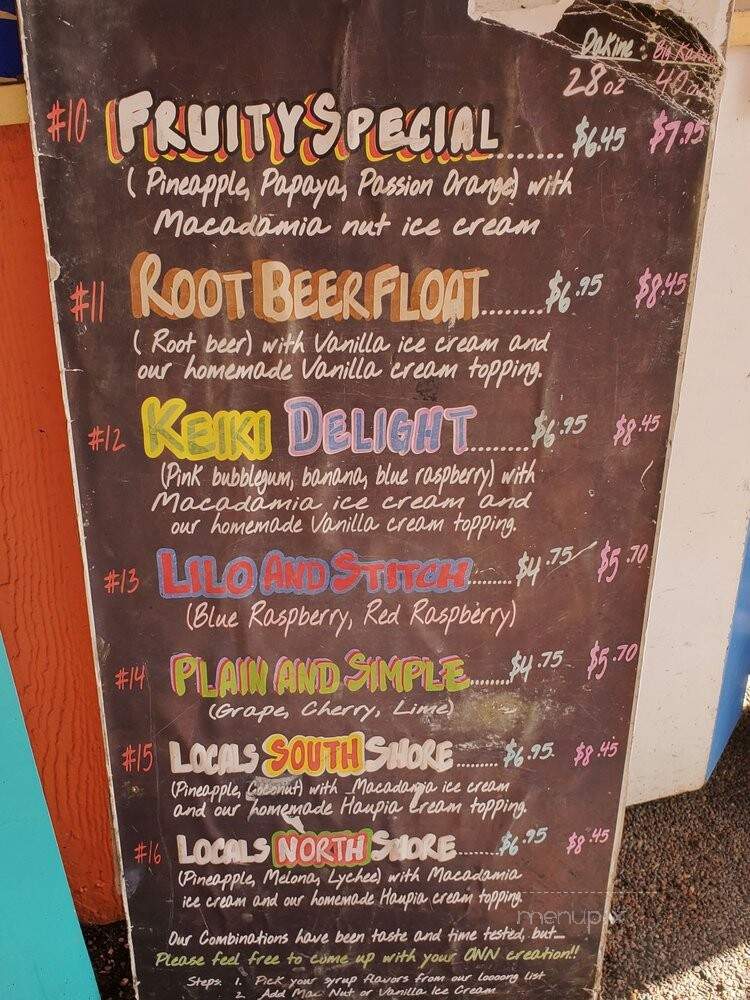 DaKine: Big Kahuna
28oz 40oz
#10 FRUITY SPECIAL........ $6.45 $7.95
( Pineapple, Papaya, Passion Orange) with
Macadamia nut ice cream
#11 ROOT BEER FLOAT......... $6.95 $8.45
( Root beer) with Vanilla ice cream and
our homemade Vanilla cream topping.
#12 KEIKI DELIGHT......... $6.95 $8.45
(Pink bubblegum, banana, blue raspberry) with
Macadamia ice cream and
our homemade Vanilla cream topping.
#13 LILO AND STITCH........ $4.75 $5.70
(Blue Raspberry, Red Raspberry)
#14 PLAIN AND SIMPLE....... $4.75 $5.70
(Grape, Cherry, Lime)
#15 LOCALS SOUTH SHORE........ $6.95 $8.45
(Pineapple, Coconut) with Macadamia ice cream
and our homemade Haupia cream topping.
#16 LOCALS NORTH SHORE......... $6.95 $8.45
(Pineapple, Melona, Lychee) with Macadamia
ice cream and our homemade Haupia cream topping.
menupix
Our Combinations have been taste and time tested, but...
Please feel free to come up with your OWN creation!!
Steps: 1. Pick your syrup flavors from our loooong list
2. Add Mac Nut or Vanilla Ice Cream